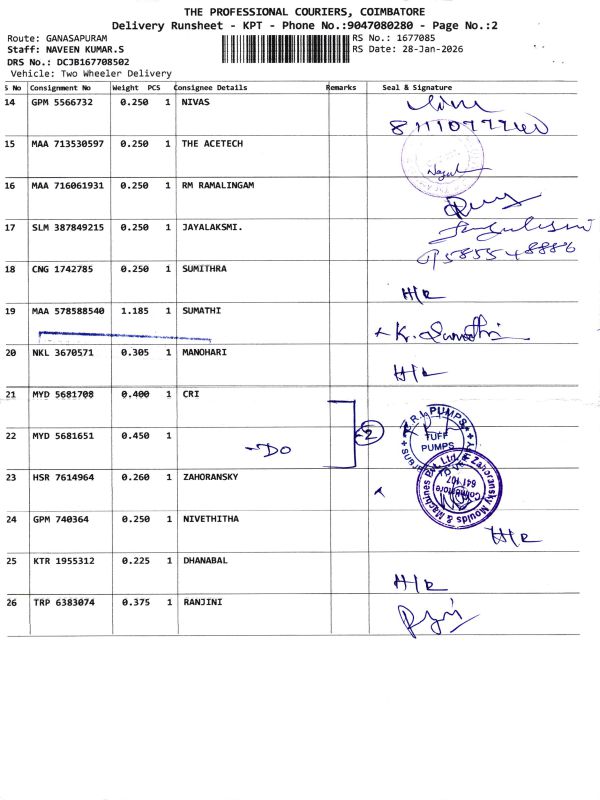 THE PROFESSIONAL COURIERS, COIMBATORE
Delivery Runsheet - KPT - Phone No.:9047080280 - Page No.:2
Route: GANASAPURAM RS No.: 1677085
Staff: NAVEEN KUMAR.S RS Date: 28-Jan-2026
DRS No.: DCJB167708502
Vehicle: Two Wheeler Delivery
S No Consignment No Weight PCS Consignee Details Remarks Seal & Signature
14 GPM 5566732 0.250 1 NIVAS
15 MAA 713530597 0.250 1 THE ACETECH
16 MAA 716061931 0.250 1 RM RAMALINGAM
17 SLM 387849215 0.250 1 JAYALAKSMI.
18 CNG 1742785 0.250 1 SUMITHRA H/R
19 MAA 578588540 1.185 1 SUMATHI K. Sumathi
20 NKL 3670571 0.305 1 MANOHARI H/R
21 MYD 5681708 0.400 1 CRI C.R.I. PUMPS
22 MYD 5681651 0.450 1 -DO 2 TUFF PUMPS
23 HSR 7614964 0.260 1 ZAHORANSKY Zahoransky Moulds & Machines Pvt. Ltd. Coimbatore 641 107
24 GPM 740364 0.250 1 NIVETHITHA H/R
25 KTR 1955312 0.225 1 DHANABAL H/R
26 TRP 6383074 0.375 1 RANJINI